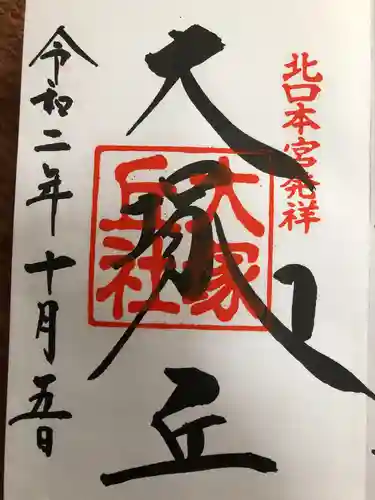 北口本宮発祥
大塚丘
大塚
丘社
令和二年十月五日